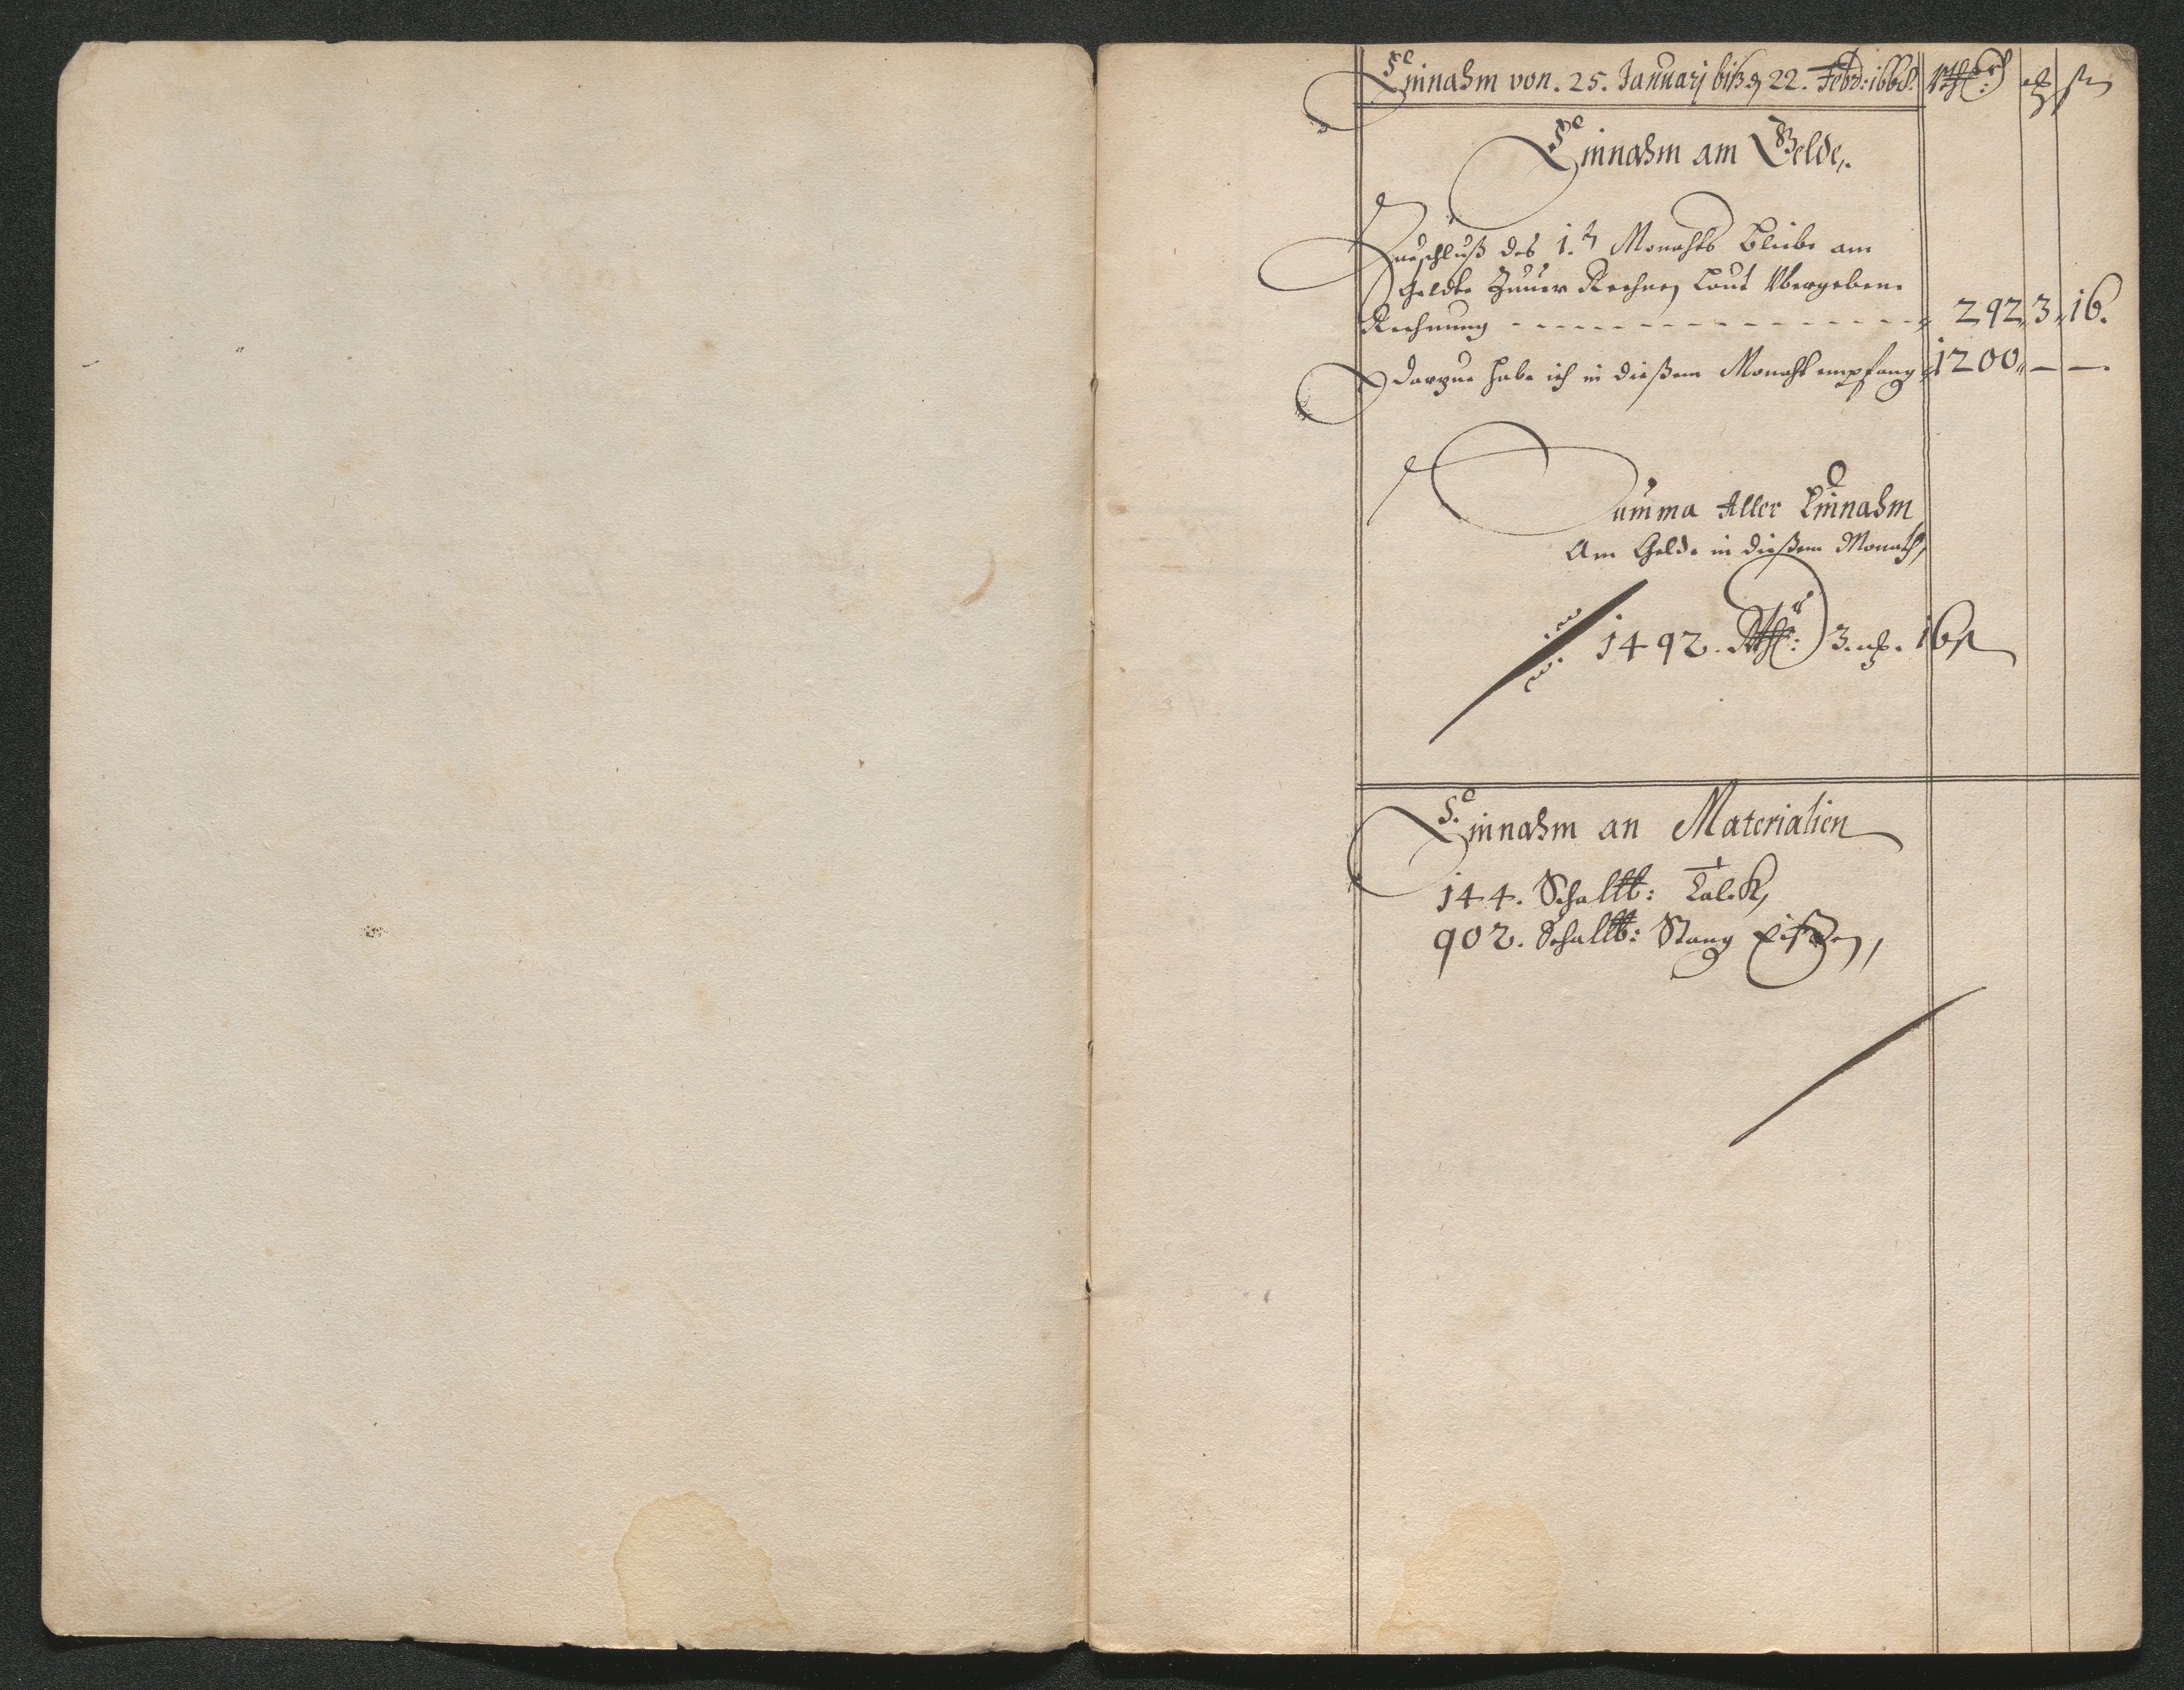 Einnahm von. 25. Januarj biß d 22. Febr: 1668. Rthlr: mk ß
Einnahm am Gelde,.
Zueschluß des 1.t Monahts bliebe am
Geldte Zuuor Rechnen Laut Vbergebene
Rechnung - - - - - - - - - - - - - - - 292„ 3„ 16.
Darzue habe ich in dießem Monaht empfang 1200„ — —.
Summa Aller Einnahm
Am Gelde in dießem Monath,
1492. Rthlr: 3. mk. 16 ß
Einnahm an Materialien
144. Schallb: Talck,
902. Schallb: Stang Eißen,